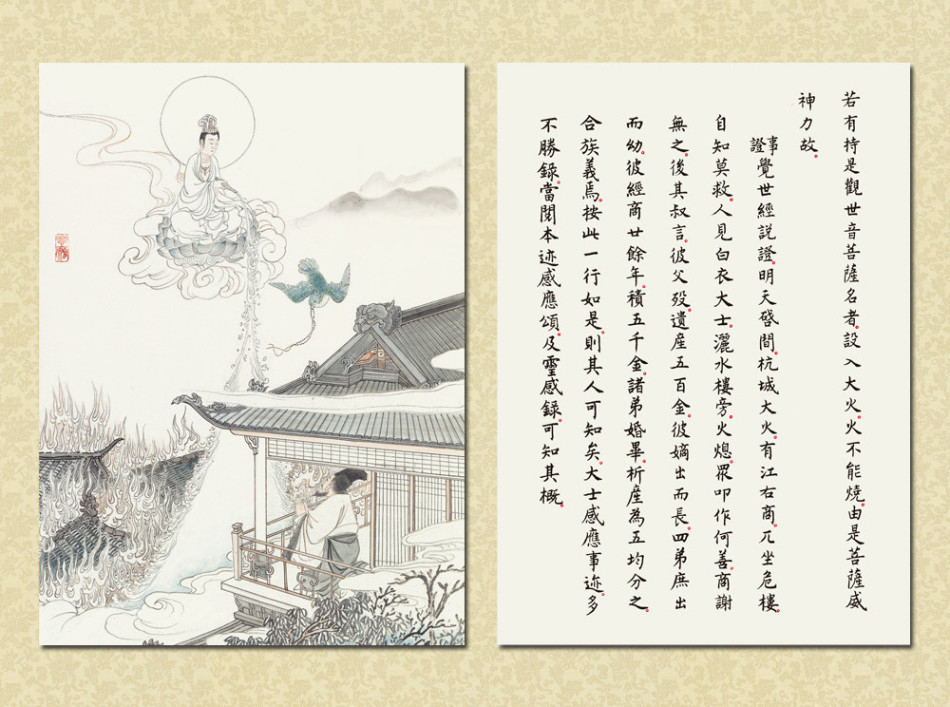 若有持是觀世音菩薩名者。設入大火。火不能燒。由是菩薩威
神力故。
事證 覺世經説證。明天啓間。杭城大火。有江右商。兀坐危樓。
自知莫救。人見白衣大士。灑水樓旁。火熄。眾叩作何善。商謝
無之。後其叔言。彼父歿。遺産五百金。彼嫡出而長。四弟庶出
而幼。彼經商廿餘年。積五千金。諸弟婚畢。析産為五。均分之。
合族義焉。按此一行如是。則其人可知矣。大士感應事迹。多
不勝錄。當閱本迹感應頌。及靈感錄。可知其概。